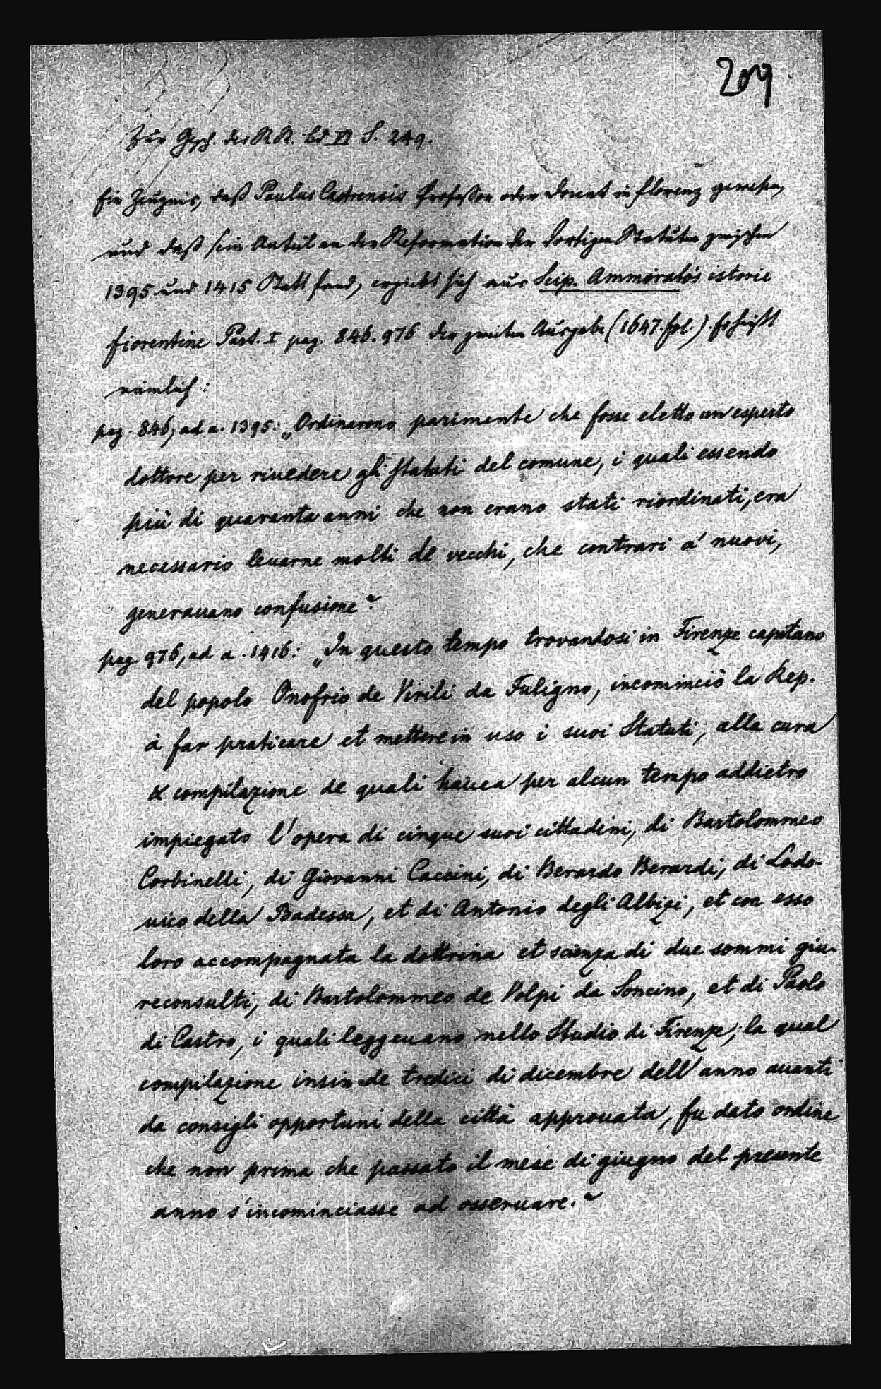 209
Zur Gesch. des RR. Bd VI S. 249.
Ein Zeugnis, daß Paulus Castrensis Professor oder Docent in Florenz gewesen,
und daß sein Antheil an der Reformation der dortigen Statuten zwischen
1395 und 1415 Statt fand, ergiebt sich aus Scip. Ammirato's istorie
fiorentine Part. I pag. 846. 976 der zweiten Ausgabe (1647. fol.). Es heißt
nämlich:
pag. 846, ad a. 1395: „Ordinarono parimente che fosse eletto un esperto
dottore per riuedere gli statuti del comune, i quali essendo
più di quaranta anni che non erano stati riordinati, era
necessario leuarne molti de vecchi, che contrari a' nuovi,
generauano confusione“
pag 976, ad a. 1416: „In questo tempo trovandosi in Firenze capitano
del popolo Onofrio de Virili da Fuligno, incominciò la Rep.
à far praticare et mettere in uso i suoi Statuti, alla cura
& compilazione de quali haueа per alcun tempo addietro
impiegato l'opera di cinque suoi cittadini, di Bartolommeo
Corbinelli, di Giovanni Caccini, di Berardo Berardi, di Lodo-
uico della Badessa, et di Antonio degli Albizi, et con esso
loro accompagnata la dottrina et scienza di due sommi giu-
reconsulti, di Bartolommeo de Volpi da Soncino, et di Paolo
di Castro, i quali leggeuano nello Studio di Firenze; la qual
compilazione insin de tredici di dicembre dell' anno auanti
da consigli opportuni della città approuata, fu dato ordine
che non prima che passato il mese di giugno del presente
anno s'incominciasse ad osseruare.“